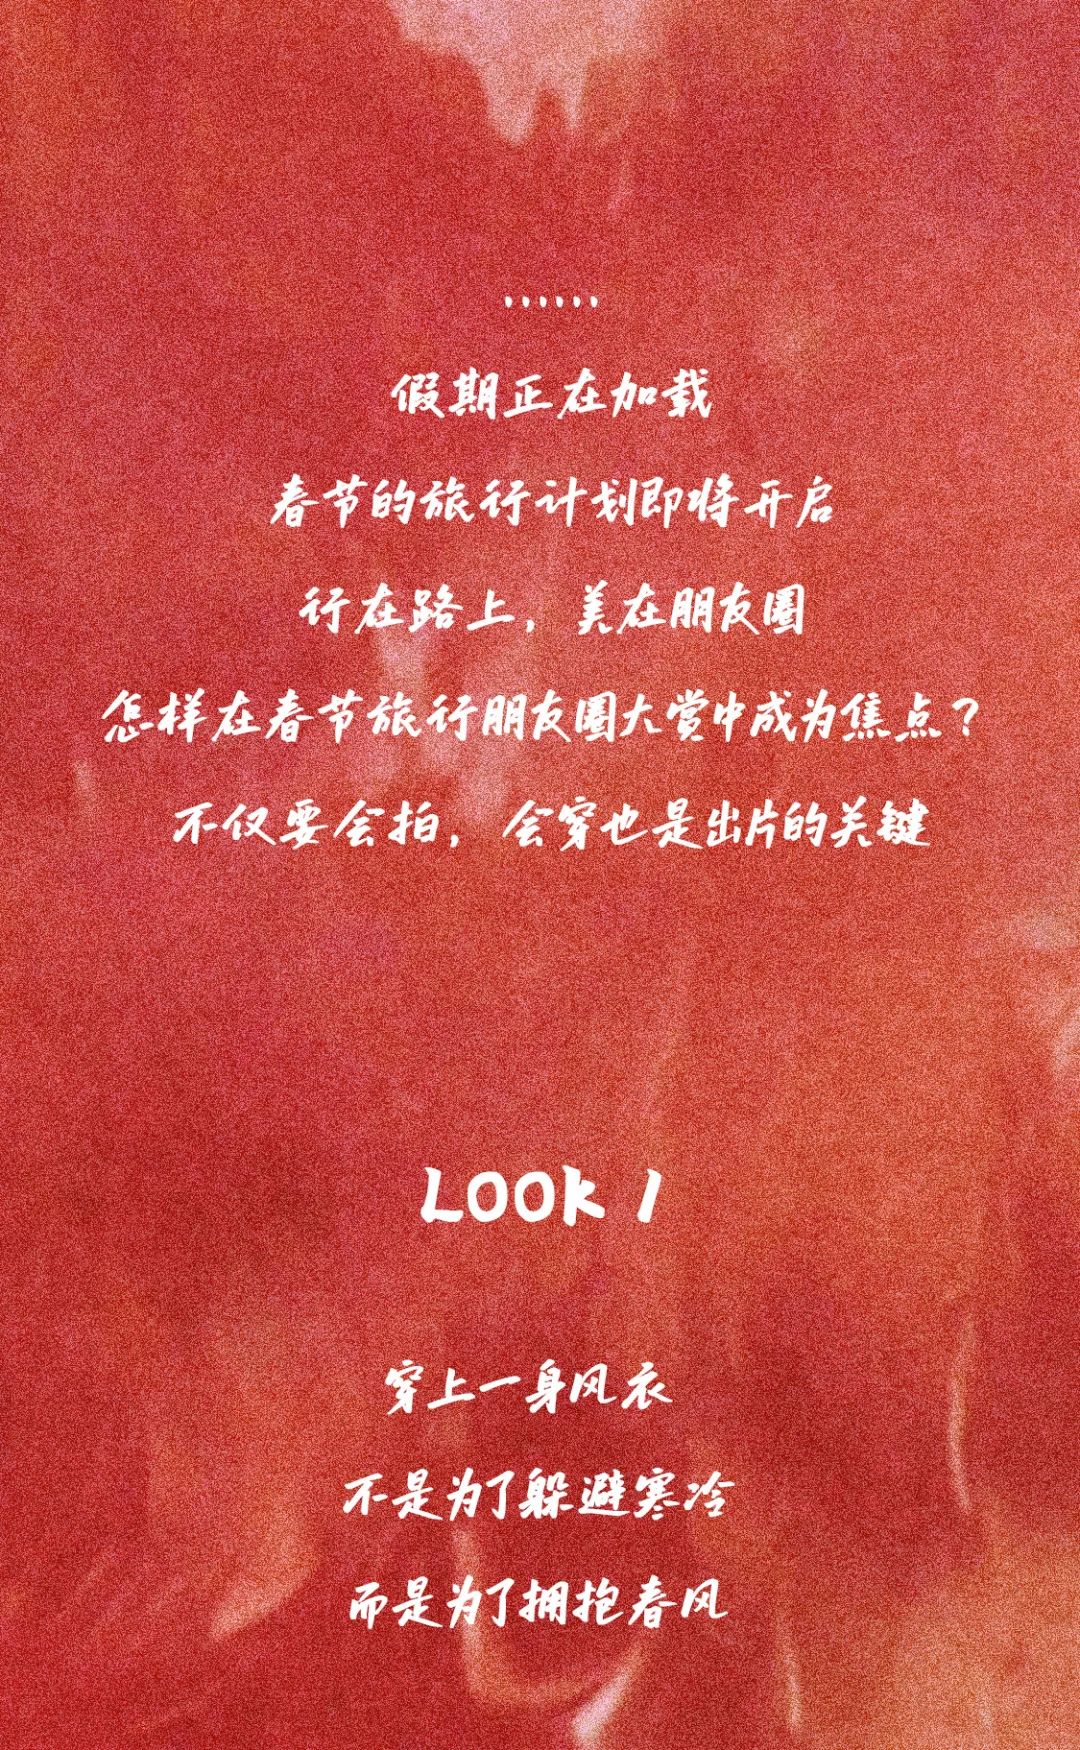 ......
假期正在加载
春节的旅行计划即将开启
行在路上，美在朋友圈
怎样在春节旅行朋友圈大赏中成为焦点？
不仅要会拍，会穿也是出片的关键
LOOK 1
穿上一身风衣
不是为了躲避寒冷
而是为了拥抱春风